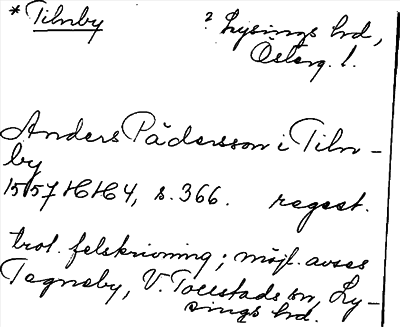 *Tilnby ? Lysings hrd,
Österg. l.
Anders Pädersson i Tiln-
by
1557 HH4, s. 366. regest.
trol. felskrivning; möjl. avses
Tegneby, V. Tollstads sn, Ly-
sings hrd.